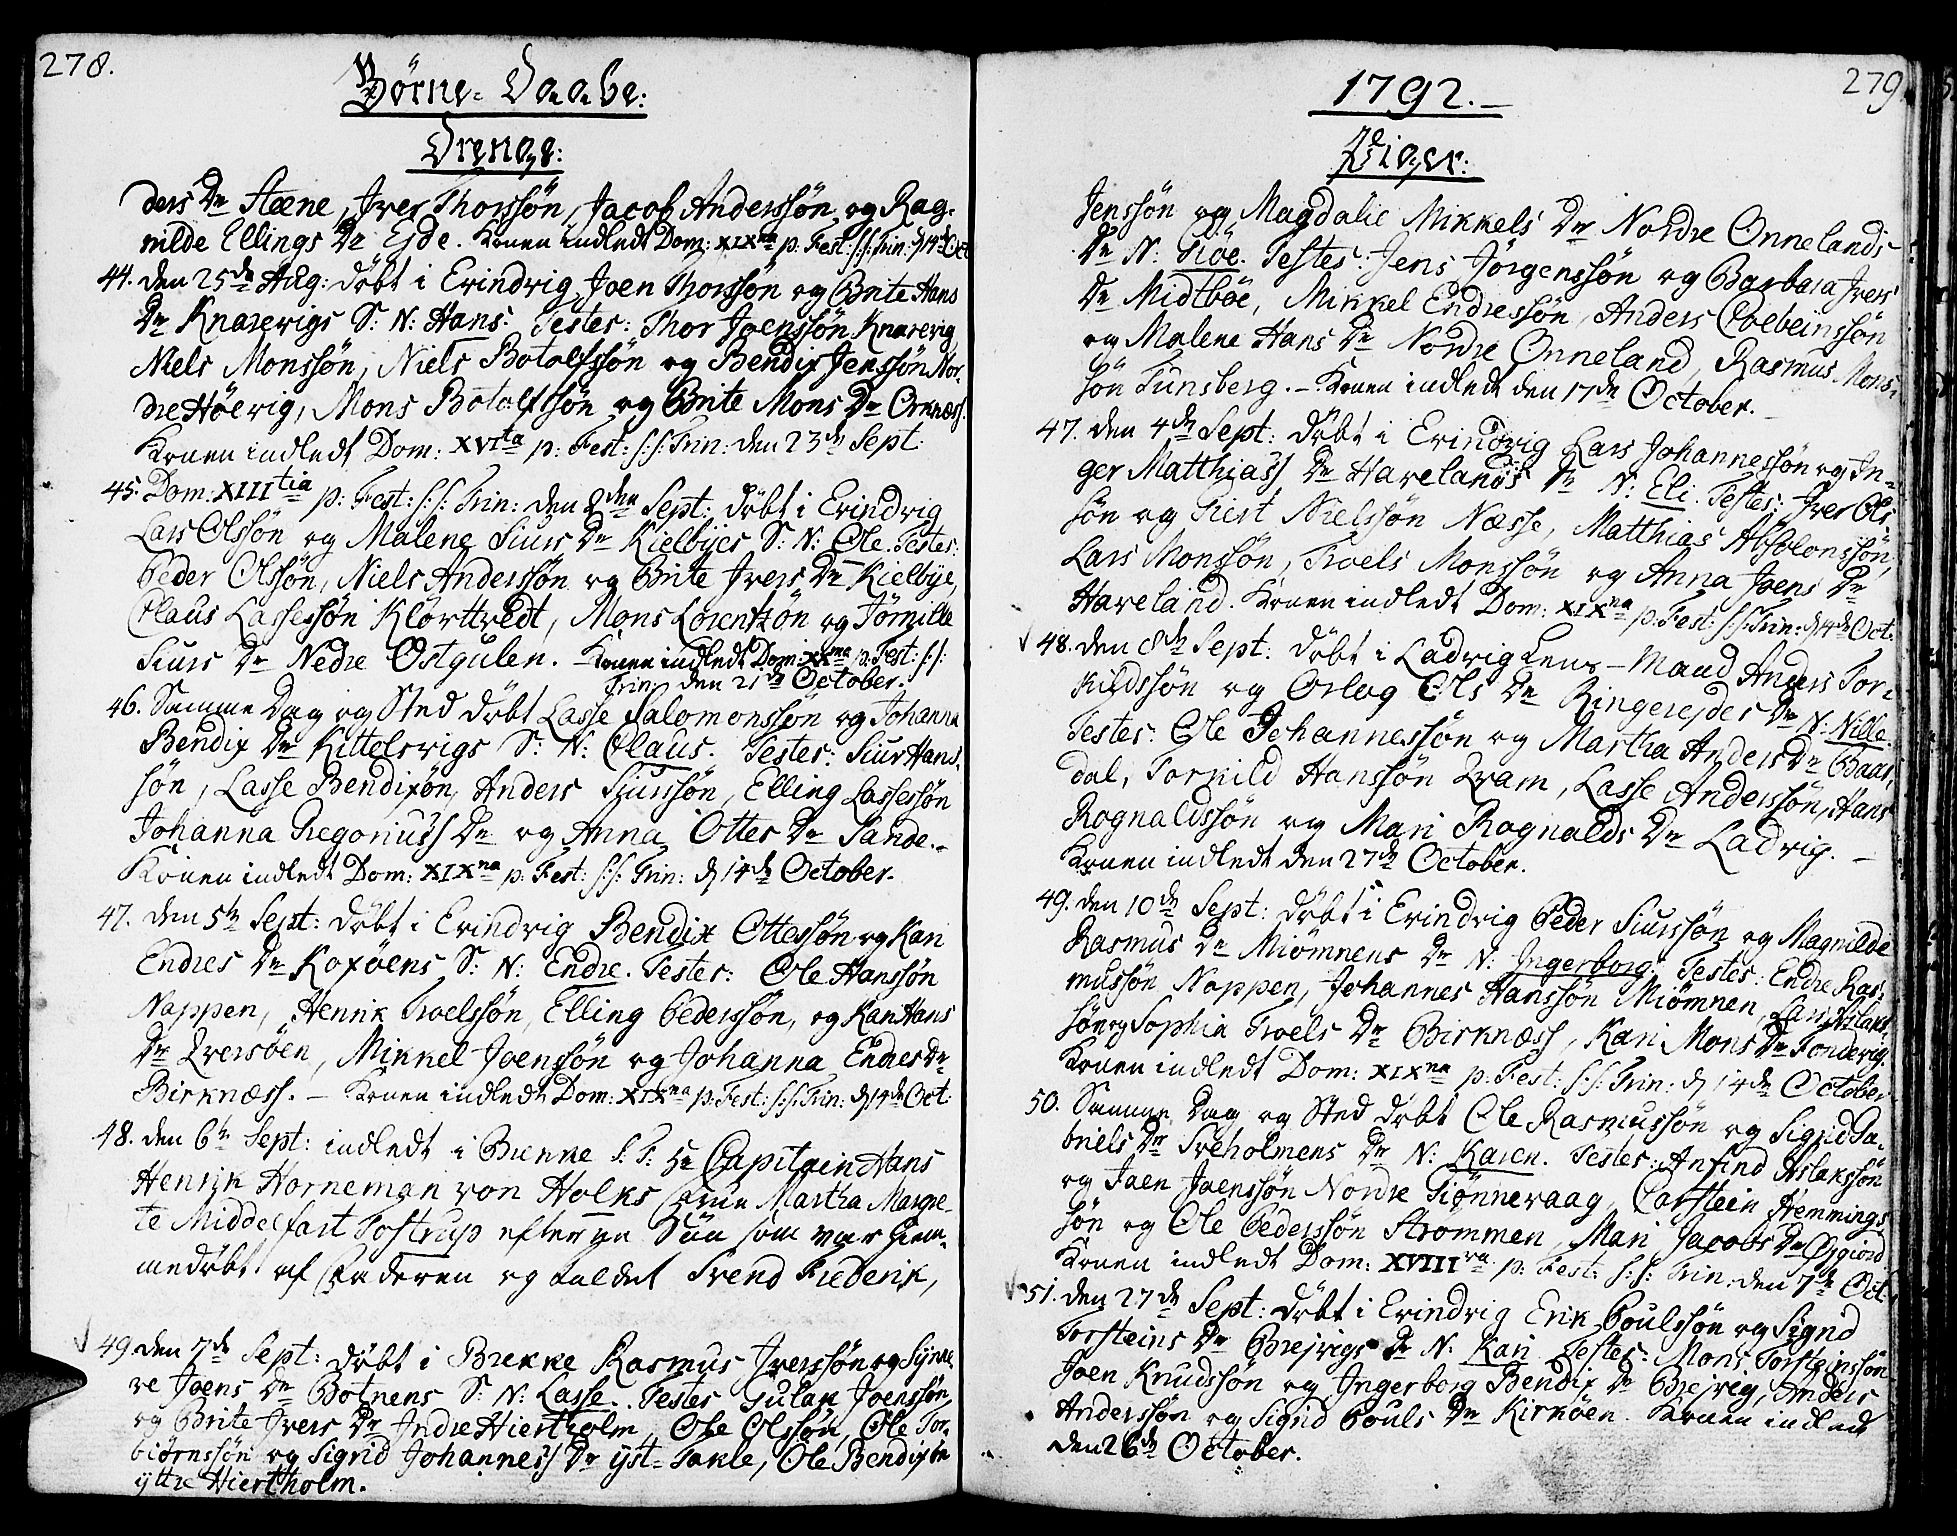 278.
Börne-Daabe:
Drenge:
ders Dr Steene, Iver Thorssön, Jacob Anderssön og Rag-
nilde Ellings Dr Ejde. Konen indledt Dom: XIXna p: Fest: S:S: Trin: d 14de Oct
44. den 25de Aug: döbt i Evindvig Joen Thorssön og Brite Hans
Dr Knarevigs S: N: Hans. Testes: Thor Joenssön Knarevig,
Niels Monssön, Niels Botolfssön og Bendix Jenssön Nor-
dre Höevig, Mons Botolfssön og Brite Mons Dr Orknæss.
Konen indledt Dom: XVIta p: Fest: S:S: Trin: den 23de Sept:
45. Dom: XIIItia p: Fest: S:S: Trin: den 2den Sept: döbt i Evindvig
Lars Olssön og Malene Siurs Dr Kielbyes S: N: Ole. Testes:
Peder Olssön, Niels Anderssön og Brite Ivers Dr Kielbye,
Claus Lassessön Klörttvedt, Mons Lorentzön og Jörnille
Siurs Dr Nedre Ostgulen. Konen indledt Dom: XXma p: Fest: S:S:
Trin: den 21de October.
46. Samme Dag og Sted döbt Lasse Salomonssön og Johanna
Bendix Dr Kittelsvigs S: N: Claus. Testes: Siur Hans-
sön, Lasse Bendixön, Anders Sjurssön, Elling Lassessön
Johanna Gregorius's Dr og Anna Ottes Dr Sande.-
Konen indledt Dom: XIXna p: Fest: S:S: Trin: d 14de October.
47. den 5te Sept: döbt i Evindvig Bendix Ottessön og Kari
Endres Dr Koxöens S: N: Endre. Testes: Ole Hanssön
Nappen, Henrik Troelssön, Elling Pederssön, og Kari Hans
Dr Qversöen, Mikkel Joenssön og Johanna Endres Dr
Birknæss. - Konen indledt Dom: XIXna p: Fest: S:S: Trin: d 14de Oct:
48. den 6te Sept: indledt i Brekke S: T: Hr Capitain Hans
Henrik Horneman von Holks Frue Martha Margre-
te Middelfart Tostrup efter en Sön som var hiem-
medöbt af Faderen og kaldet Svend Frederik,
49. den 7de Sept: döbt i Brekke Rasmus Iverssön og Synne-
ve Joens Dr Botnens S: N: Lasse. Testes Gulak Joenssön,
og Brite Ivers Dr Indre Hiertholm, Ole Olssön, Ole Tor-
biörnssön og Sigrid Johannes's Dr yst- Takle, Ole Bendixön
yttre Hiertholm.
1792.-
279
Piger:
Jenssön og Magdalie Mikkels Dr Nordre Onnelands
Dr N: Giöe. Testes: Jens Jörgenssön og Barbara Ivers
Dr Midtböe, Mikkel Endressön, Anders Colbeinssön
og Malene Hans Dr Nordre Onneland, Rasmus Mons-
sön Tunsberg. - Konen indledt den 17de October.
47. den 4de Sept: döbt i Evindvig Lars Johannessön og In-
ger Matthias's Dr Havelands Dr N: Eli. Testes: Iver Ols-
sön og Siert Nielssön Næsse, Matthias Absolonssön,
Lars Monssön, Troels Monssön og Anna Joens Dr
Haveland. Konen indledt Dom: XIXna p: Fest: S:S: Trin: d 14de Oct:
48. den 8de Sept: döbt i Ladvig Lens-Mand Anders Tor-
kildssön og Orlog Ols Dr Ringerejdes Dr N: Nille.
Testes: Ole Johannessön og Martha Anders Dr Baar-
dal, Torkild Hanssön Qvam, Lasse Anderssön, Hans
Rognaldssön og Mari Rognalds Dr Ladvig. -
Konen indledt den 27de October.
49. den 10de Sept: döbt i Evindvig Peder Siurssön og Magnilde
Rasmus Dr Miömnens Dr N: Ingerborg. Testes: Endre Ras-
mussön Nappen, Johannes Hanssön Miömnen, Lars Aslaks-
sön og Sophia Troels Dr Birknæss, Kari Mons Dr Tondevig.
Konen indledt Dom: XIXna p: Fest: S:S: Trin: d 14de October
50. Samme Dag og Sted döbt Ole Rasmussön og Sigrid Ga-
briels Dr Treholmens Dr N: Karen. Testes: Anfind Aslakssön
og Joen Joenssön Nordre Giönneraag, Carstein Hemmings-
sön og Ole Pederssön Strommen, Mari Jacobs Dr Öygiord
Konen indledt Dom: XVIIIva p: Fest: S:S: Trin: den 7de Oct:
51. den 27de Sept: döbt i Evindvig Erik Poulssön og Sigrid
Torsteins Dr Brejvigs Dr N: Kari. Testes: Mons Torsteinssön
Joen Knudssön og Ingerborg Bendix Dr Brejvig, Anders
Anderssön og Sigrid Pouls Dr Kirköen. Konen indledt
den 26de October.